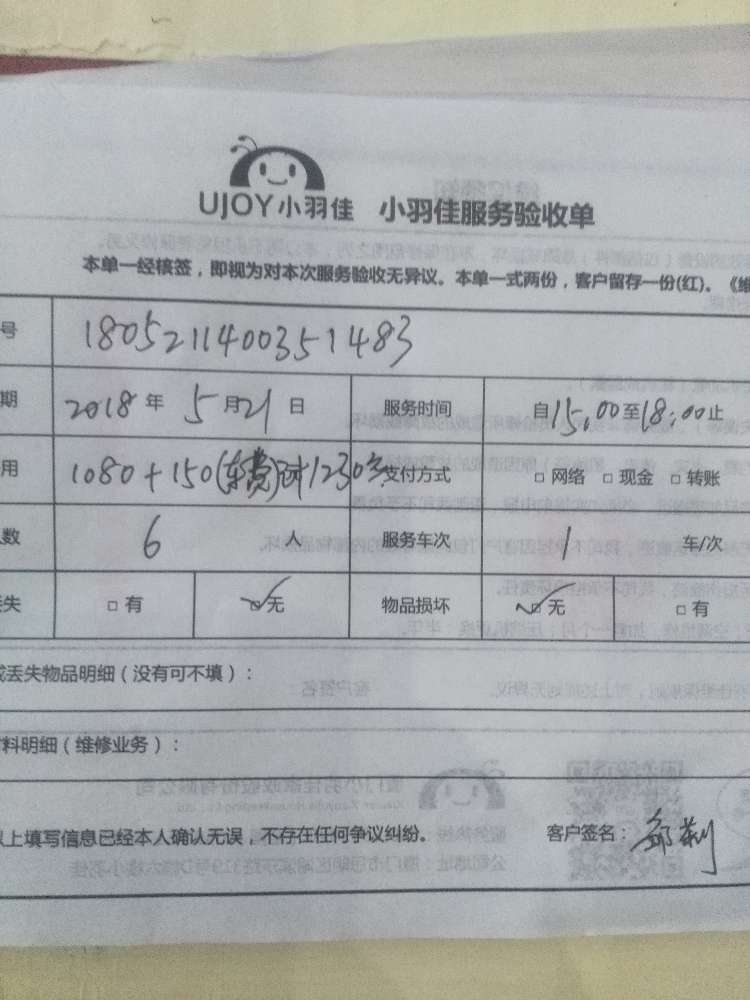 UJOY小羽佳 小羽佳服务验收单
本单一经核签，即视为对本次服务验收无异议。本单一式两份，客户留存一份(红)。《维
号 180521140035 1483
期 2018年 5月21日 服务时间 自15:00至18:00止
用 1080+150(车费)计1230元 支付方式 □ 网络 □ 现金 □ 转账
人数 6 人 服务车次 1 车/次
丢失 □ 有 ☑ 无 物品损坏 ☑ 无 □ 有
或丢失物品明细（没有可不填）：
材料明细（维修业务）：
以上填写信息已经本人确认无误，不存在任何争议纠纷。 客户签名：